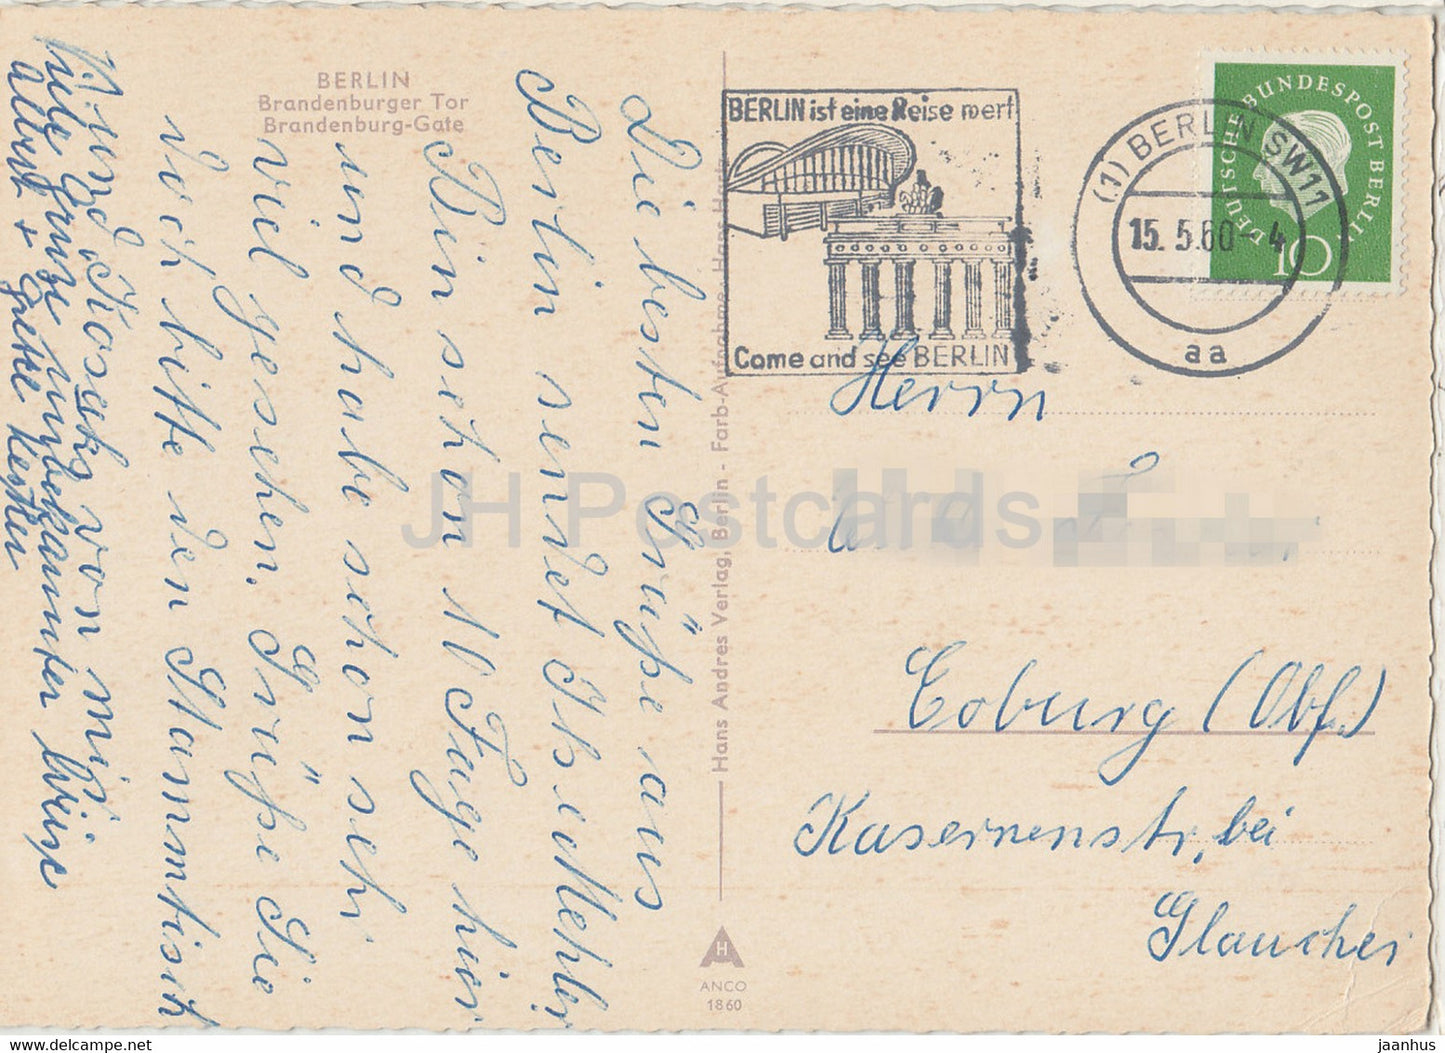 BERLIN
Brandenburger Tor
Brandenburg-Gate
Die besten Grüße aus
Berlin sendet Ihr Mehler
Bin schon 10 Tage hier
und habe schon sehr
viel gesehen. Grüße Sie
doch bitte den Stammtisch
und von mir
viele Grüße unbekannter Weise
Albert + Grete
Hans Andres Verlag, Berlin - Farb-Aufnahme Hans
H
ANCO
1860
BERLIN ist eine Reise wert
Come and see BERLIN
(1) BERLIN SW11
15. 5. 60 - 4
aa
DEUTSCHE BUNDESPOST BERLIN
10
Herrn
Coburg (Obf.)
Kasernenstr. bei
JH Postcards
jaanhus.ecrater.com